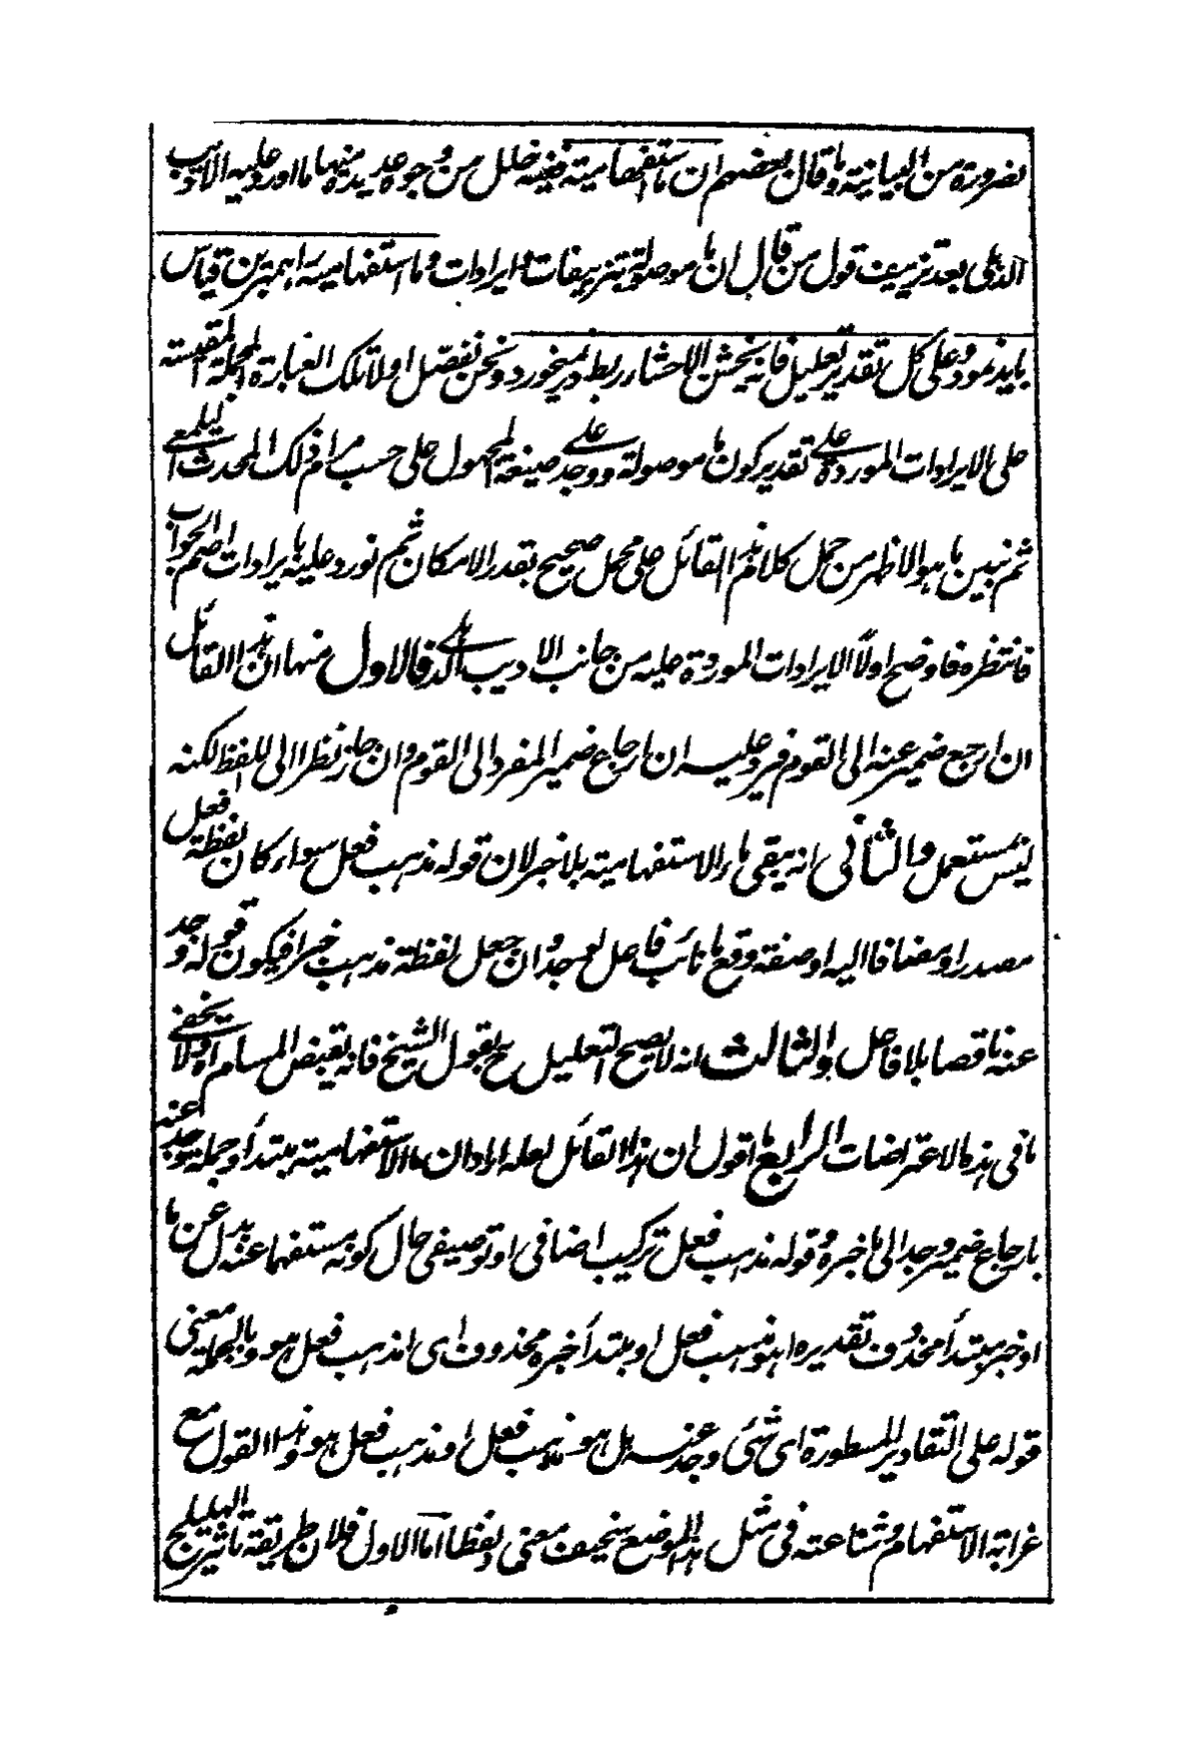 ضرورة من البيانية وما قال بعضهم ان ما استفهامية ففيه خلل من وجوه عديدة منها ما اورد عليه الاديب
الذكى بعد تزييف قول من قال ان ما موصولة بتزييفات وايرادات وما استفهامية را بمبرين قياس
بايد نمود وعلى كل تقدير تعليل فانه يخش الاحشاء ربط نميخورد ونحن نفصل اولا تلك العبارة المجملة المقيسة
على الايرادات الموردة على تقدير كون ما موصولة ووجد على صيغة المجهول على حسب مرام ذلك المحدث اليلمعى
ثم نبين ما هو الاظهر من حمل كلام هذا القائل على محمل صحيح بقدر الامكان ثم نورد عليه بايرادات اصم الجواب
فانتظره فاوضح اولاً الايرادات الموردة عليه من جانب الاديب الذكى فالاول منها ان هذا القائل
ان ارجع ضمير عنه الى القوم فيرد عليه ان ارجاع ضمير المفرد الى القوم وان جاز نظرا الى اللفظ لكنه
ليس بمستعمل والثانى انه يبقى ماء الاستفهامية بلا خبر لان قوله مذهب فعل سواء كان لفظة فعل
مصدرا ومضافا اليه او صفة وقع ما نائب فاعل لوجد وان جعل لفظة مذهب خبرا فيكون قوله وجد
عنه ناقصا بلا فاعل والثالث انه لا يصح التعليل ح بقول الشيخ فانه يقبض المسام اه ولا يخفى
ما فى هذه الاعتراضات الرابع ما اقول ان هذا القائل لعله اراد ان ما الاستفهامية مبتدأ وجملة وجد عنه
بارجاع ضمير وجد الى ما خبره وقوله مذهب فعل تركيب اضافى او توصيفى حال كونه مستفهما عنه بدل عن ما
او خبر مبتدأ محذوف تقديره اهو مذهب فعل او مبتدأ خبره محذوف اى امذهب فعل هو وبالجملة معنى
قوله على التقادير المسطورة اى شئ وجد عنه هل هو مذهب فعل او مذهب فعل هو وهذا القول مع
غرابة الاستفهام وشناعته فى مثل هذا الموضع سخيف معنى ولفظا اما الاول فلان طريقة تاثير الهليلج